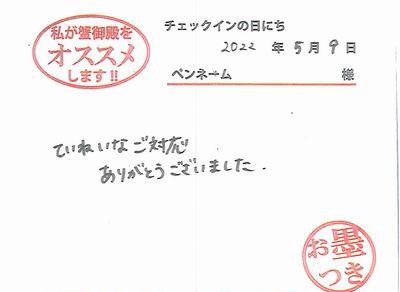 私が蟹御殿を
オススメ
します!!
チェックインの日にち
2022 年 5 月 9 日
ペンネーム 様
ていねいなご対応
ありがとうございました.
お墨
つき